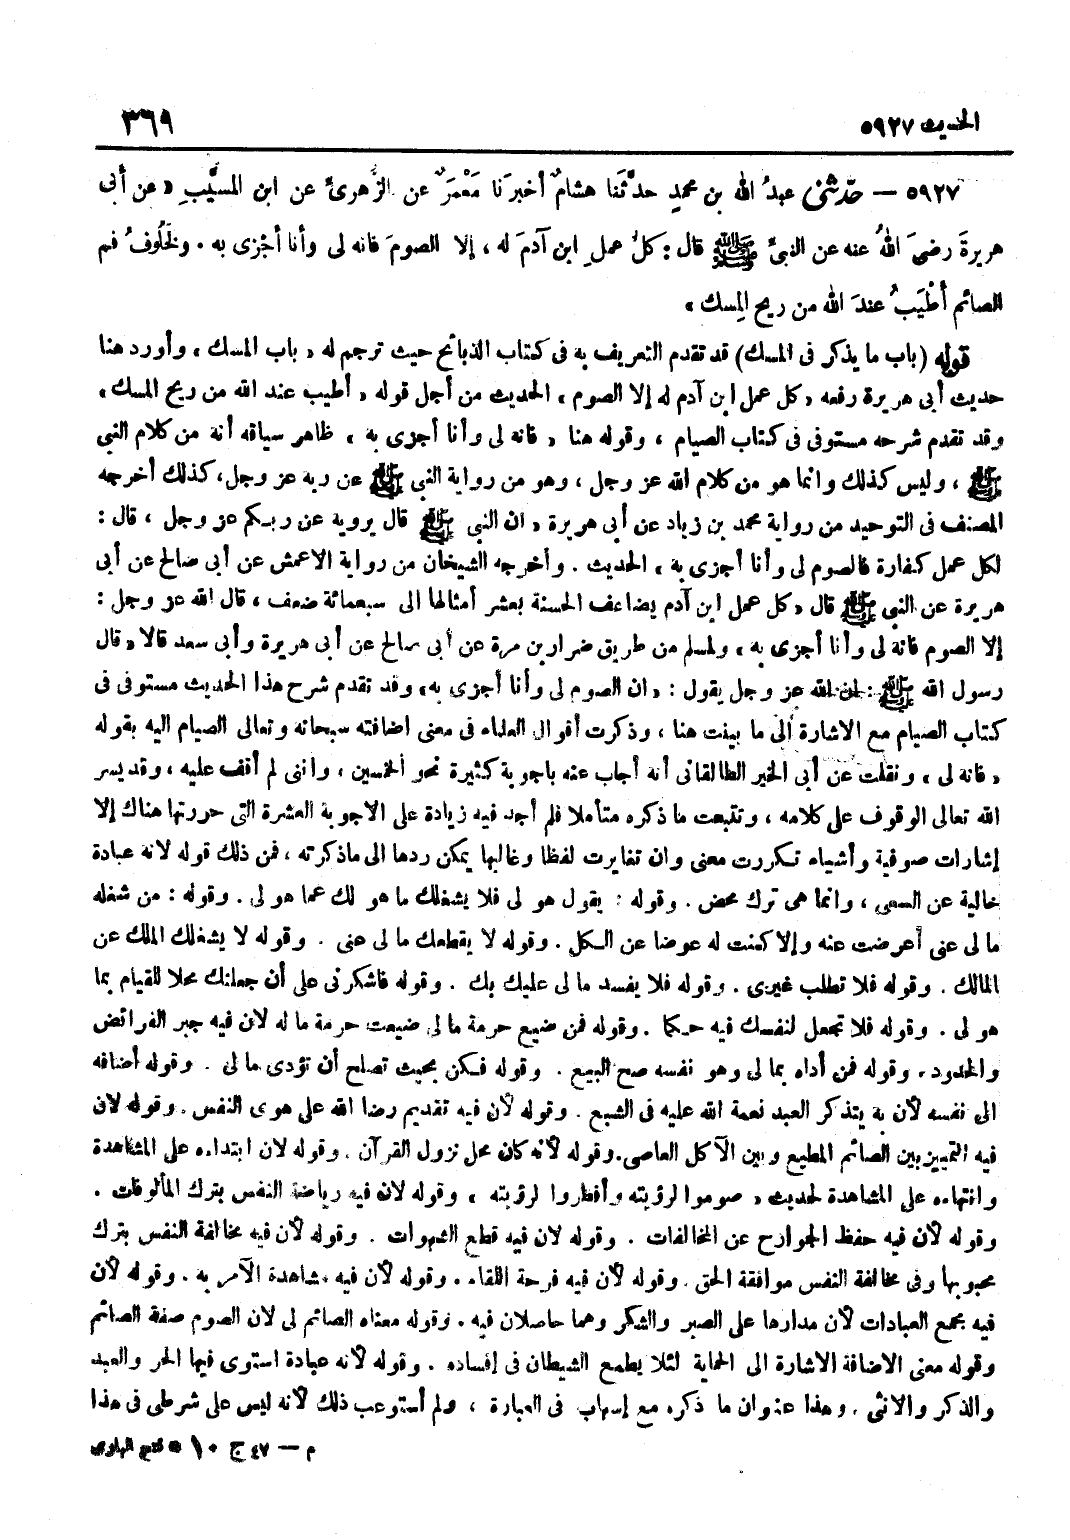 الحديث ٥٩٢٧
٣٦٩
٥٩٢٧ — حدّثنى عبدُ الله بن محمدٍ حدَّثَنا هشامٌ أخبرَنا مَعْمَرٌ عن الزُّهرىّ عن ابن المسيَّبِ « عن أبى
هريرةَ رضىَ اللهُ عنه عن النبىّ ﷺ قال : كلُّ عملِ ابن آدمَ له ، إلا الصومَ فانه لى وأنا أجْزى به . ولَخَلُوفُ فم
الصائم أَطْيَبُ عندَ الله من ريح المِسك »
قوله (باب ما يذكر فى المسك) قد تقدم التعريف به فى كتاب الذبائح حيث ترجم له « باب المسك » وأورد هنا
حديث أبى هريرة رفعه « كل عمل ابن آدم له إلا الصوم » الحديث من أجل قوله « أطيب عند الله من ريح المسك »
وقد تقدم شرحه مستوفى فى كتاب الصيام ، وقوله هنا « فانه لى وأنا أجزى به » ظاهر سياقه أنه من كلام النبي
ﷺ ، وليس كذلك وانما هو من كلام الله عز وجل ، وهو من رواية النبى ﷺ عن ربه عز وجل، كذلك أخرجه
المصنف فى التوحيد من رواية محمد بن زياد عن أبى هريرة « ان النبى ﷺ قال يرويه عن ربكم عز وجل ، قال :
لكل عمل كفارة فالصوم لى وأنا أجزى به » الحديث . وأخرجه الشيخان من رواية الاعمش عن أبى صالح عن أبى
هريرة عن النبى ﷺ قال « كل عمل ابن آدم يضاعف الحسنة بعشر أمثالها الى سبعمائة ضعف ، قال الله عز وجل :
إلا الصوم فانه لى وأنا أجزى به » ولمسلم من طريق ضرار بن مرة عن أبى صالح عن أبى هريرة وأبى سعد قالا « قال
رسول الله ﷺ : ان الله عز وجل يقول : « ان الصوم لى وأنا أجزى به » وقد تقدم شرح هذا الحديث مستوفى فى
كتاب الصيام مع الاشارة الى ما بينت هنا ، وذكرت أقوال العلماء فى معنى اضافته سبحانه وتعالى الصيام اليه بقوله
« فانه لى » ونقلت عن أبى الخير الطالقانى أنه أجاب عنه باجوبة كثيرة نحو الخمسين ، واننى لم أقف عليه ، وقد يسر
الله تعالى الوقوف على كلامه ، وتتبعت ما ذكره متأملا فلم أجد فيه زيادة على الاجوبة العشرة التى حررتها هناك إلا
إشارات صوفية وأشياء تكررت معنى وان تغايرت لفظا وغالبها يمكن ردها الى ماذكرته ، فمن ذلك قوله لانه عبادة
خالية عن السعى ، وانما هى ترك محض . وقوله : يقول هو لى فلا يشغلك ما هو لك عما هو لى . وقوله : من شغله
ما لى عنى أعرضت عنه وإلا كنت له عوضا عن الكل . وقوله لا يقطعك ما لى عنى . وقوله لا يشغلك الملك عن
المالك . وقوله فلا تطلب غيرى . وقوله فلا يفسد ما لى عليك بك . وقوله فاشكرنى على أن جعلتك محلا للقيام بما
هو لى . وقوله فلا تجعل لنفسك فيه حكما . وقوله فمن ضيع حرمة ما لى ضيعت حرمة ما له لان فيه جبر الفرائض
والحدود ، وقوله فمن أداه بما لى وهو نفسه صح البيع . وقوله فكن بحيث تصلح أن تؤدى ما لى . وقوله أضافه
الى نفسه لأن به يتذكر العبد نعمة الله عليه فى الشبع . وقوله لأن فيه تقديم رضا الله على هوى النفس . وقوله لان
فيه التمييز بين الصائم المطيع وبين الآكل العاصى . وقوله لأنه كان محل نزول القرآن . وقوله لان ابتداءه على المشاهدة
وانتهاءه على المشاهدة لحديث « صوموا لرؤيته وأفطروا لرؤيته » وقوله لان فيه رياضة النفس بترك المألوفات .
وقوله لأن فيه حفظ الجوارح عن المخالفات . وقوله لان فيه قطع الشهوات . وقوله لأن فيه مخالفة النفس بترك
محبوبها وفى مخالفة النفس موافقة الحق . وقوله لأن فيه فرحة اللقاء . وقوله لأن فيه مشاهدة الآمر به . وقوله لأن
فيه مجمع العبادات لأن مدارها على الصبر والشكر وهما حاصلان فيه . وقوله معناه الصائم لى لان الصوم صفة الصائم
وقوله معنى الاضافة الاشارة الى الحماية لئلا يطمع الشيطان فى إفساده . وقوله لأنه عبادة استوى فيها الحر والعبد
والذكر والانثى . وهذا عنوان ما ذكره مع إسهاب فى العبارة ، ولم أستوعب ذلك لأنه ليس على شرطى فى هذا
م — ٤٧ ج ١٠ * فتح البارى